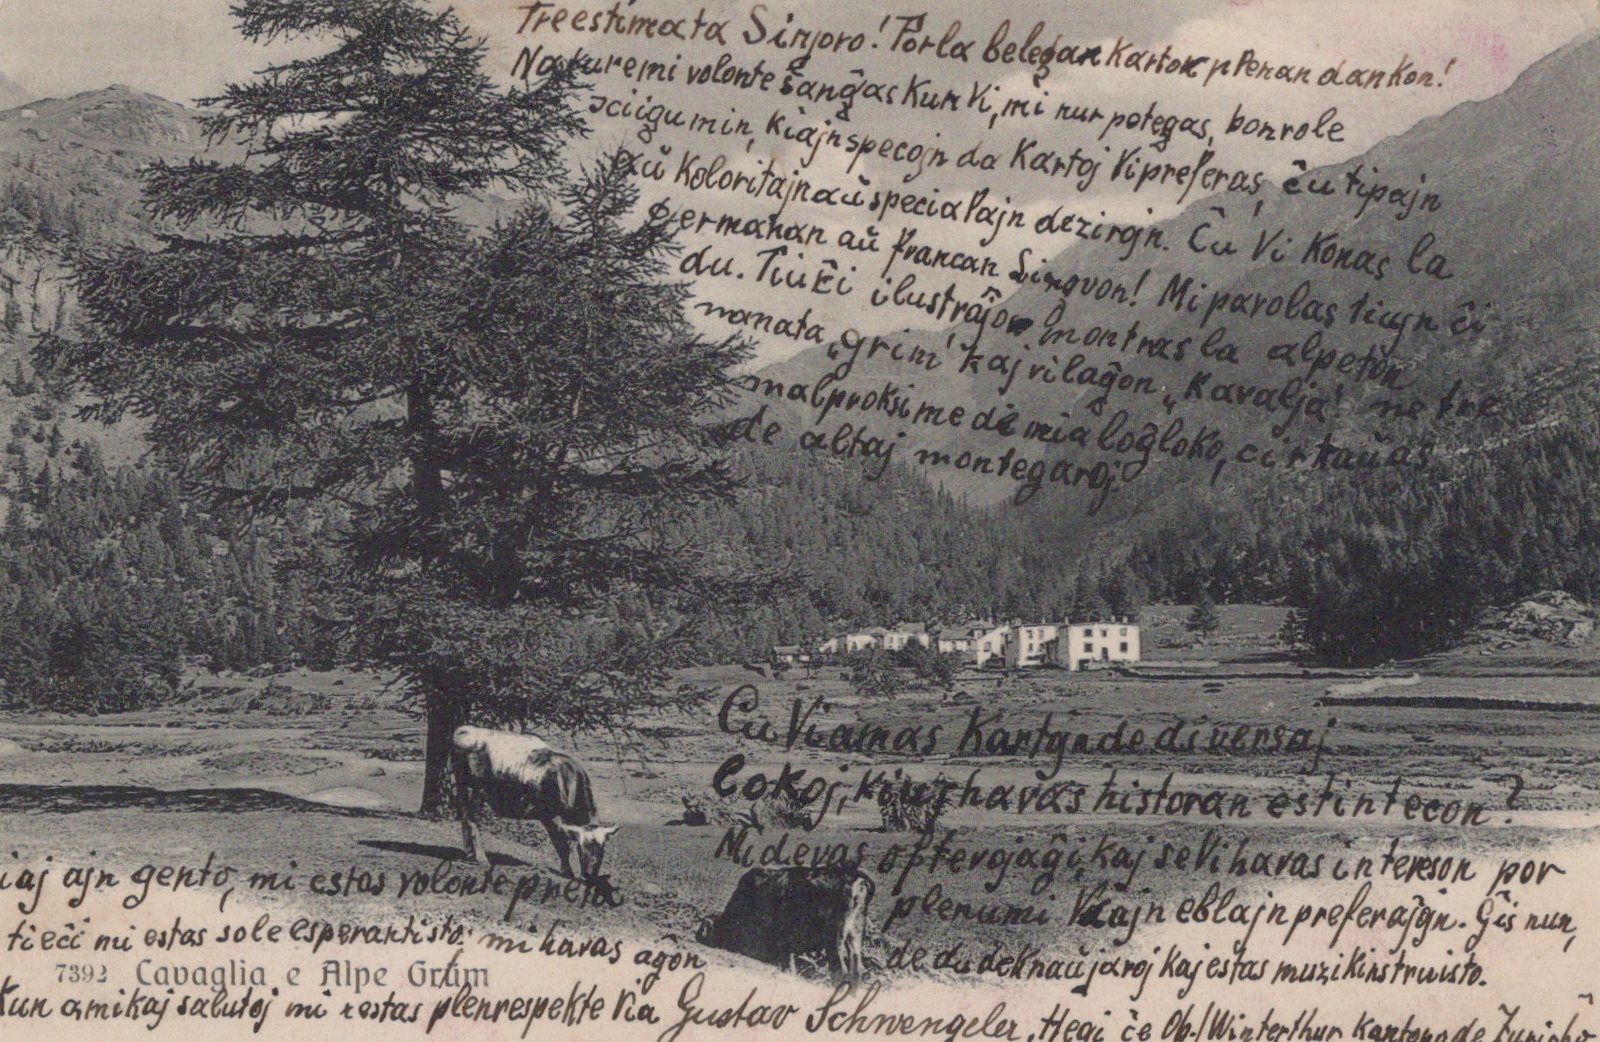 Treestimata Sinjoro! Por la belegan karton plenan dankon!
Nature mi volonte ŝanĝas kun Vi, mi nur petegas, bonvole
sciigu min, kiajn specojn da kartoj Vi preferas, ĉu tipajn
aŭ koloritajn aŭ specialajn dezirojn. Ĉu Vi konas la
germanan aŭ francan lingvon! Mi parolas tiujn ĉi
du. Tiu ĉi ilustraĵon montras la alpeton
nomata „grim" kaj vilaĝon „Kavalja" ne tre
malproksime de mia loĝloko, cirkaŭas
de altaj montegaroj.
Ĉu Vi amas kartojn de diversaj
lokoj, kiuj havas historan estintecon?
Mi devas ofte vojaĝi, kaj se Vi havas intereson por
iaj ajn gento, mi estas volonte preta
plenumi Viajn eblajn preferaĵojn. Ĝis nun,
tie ĉi mi estas sole esperantisto; mi havas aĝon
de dudeknaŭ jaroj kaj estas muzikinstruisto.
7392 Cavaglia e Alpe Grüm
Kun amikaj salutoj mi restas plenrespekte Via Gustav Schwengeler, Hegi ĉe Ob./Winterthur Kantono de